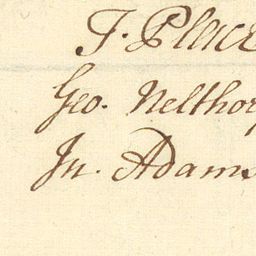 T. Place
Geo. Nelthor
Jn. Adams